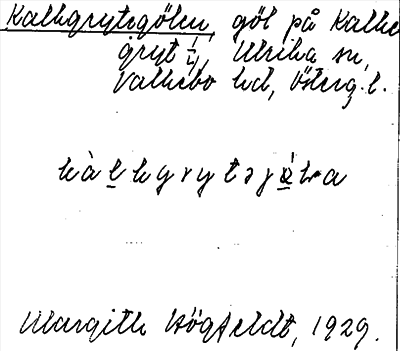 Kalkgrytsgölen, göl på Kalk-
gryt 1/4, Ulrika sn,
Valkebo hd, Österg. l.
kàlkgrytsjö̀lna
Margith Högfeldt, 1929.